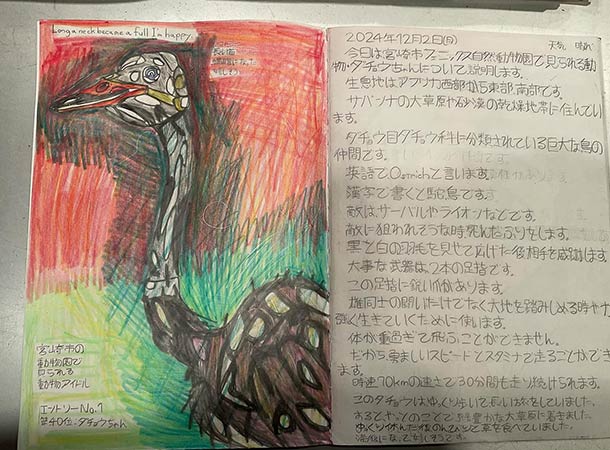 Long a neck became a full I'm happy.
長い首
宮崎市の
動物園で
見られる
動物アイドル
エントリーNo.1
第40位:タチョウちゃん
2024年12月2日(月)
天気 晴れ
今日は宮崎市フェニックス自然動物園で見られる動
物・ダチョウちゃんについて説明します。
生息地はアフリカ西部から東部、南部です。
サバンナの大草原や砂漠の乾燥地帯に住んでい
ます。
ダチョウ目ダチョウ科に分類されている巨大な鳥の
仲間です。
英語で、Ostrichと言います。
漢字で書くと駝鳥です。
敵は、サーバルやライオンなどです。
敵に狙われそうな時死んだふりをします。
黒と白の羽毛を見せて広げた後相手を威嚇します
大事な武器は、2本の足持です。
この足持に鋭い爪があります。
雄同士の闘いだけでなく大地を踏みしめる時や力
強く生きていくために使います。
体が重過ぎて飛ぶことができません。
だから、素ましいスピードとスタミナで走ることができ
ます。
時速70kmの速さで30分間も走り続けられます。
このダチョウは、ゆっくり歩いて長い旅をしていました。
な大草原に着きました。
ゆっくり休んだ後のんびりと草を食べていました。